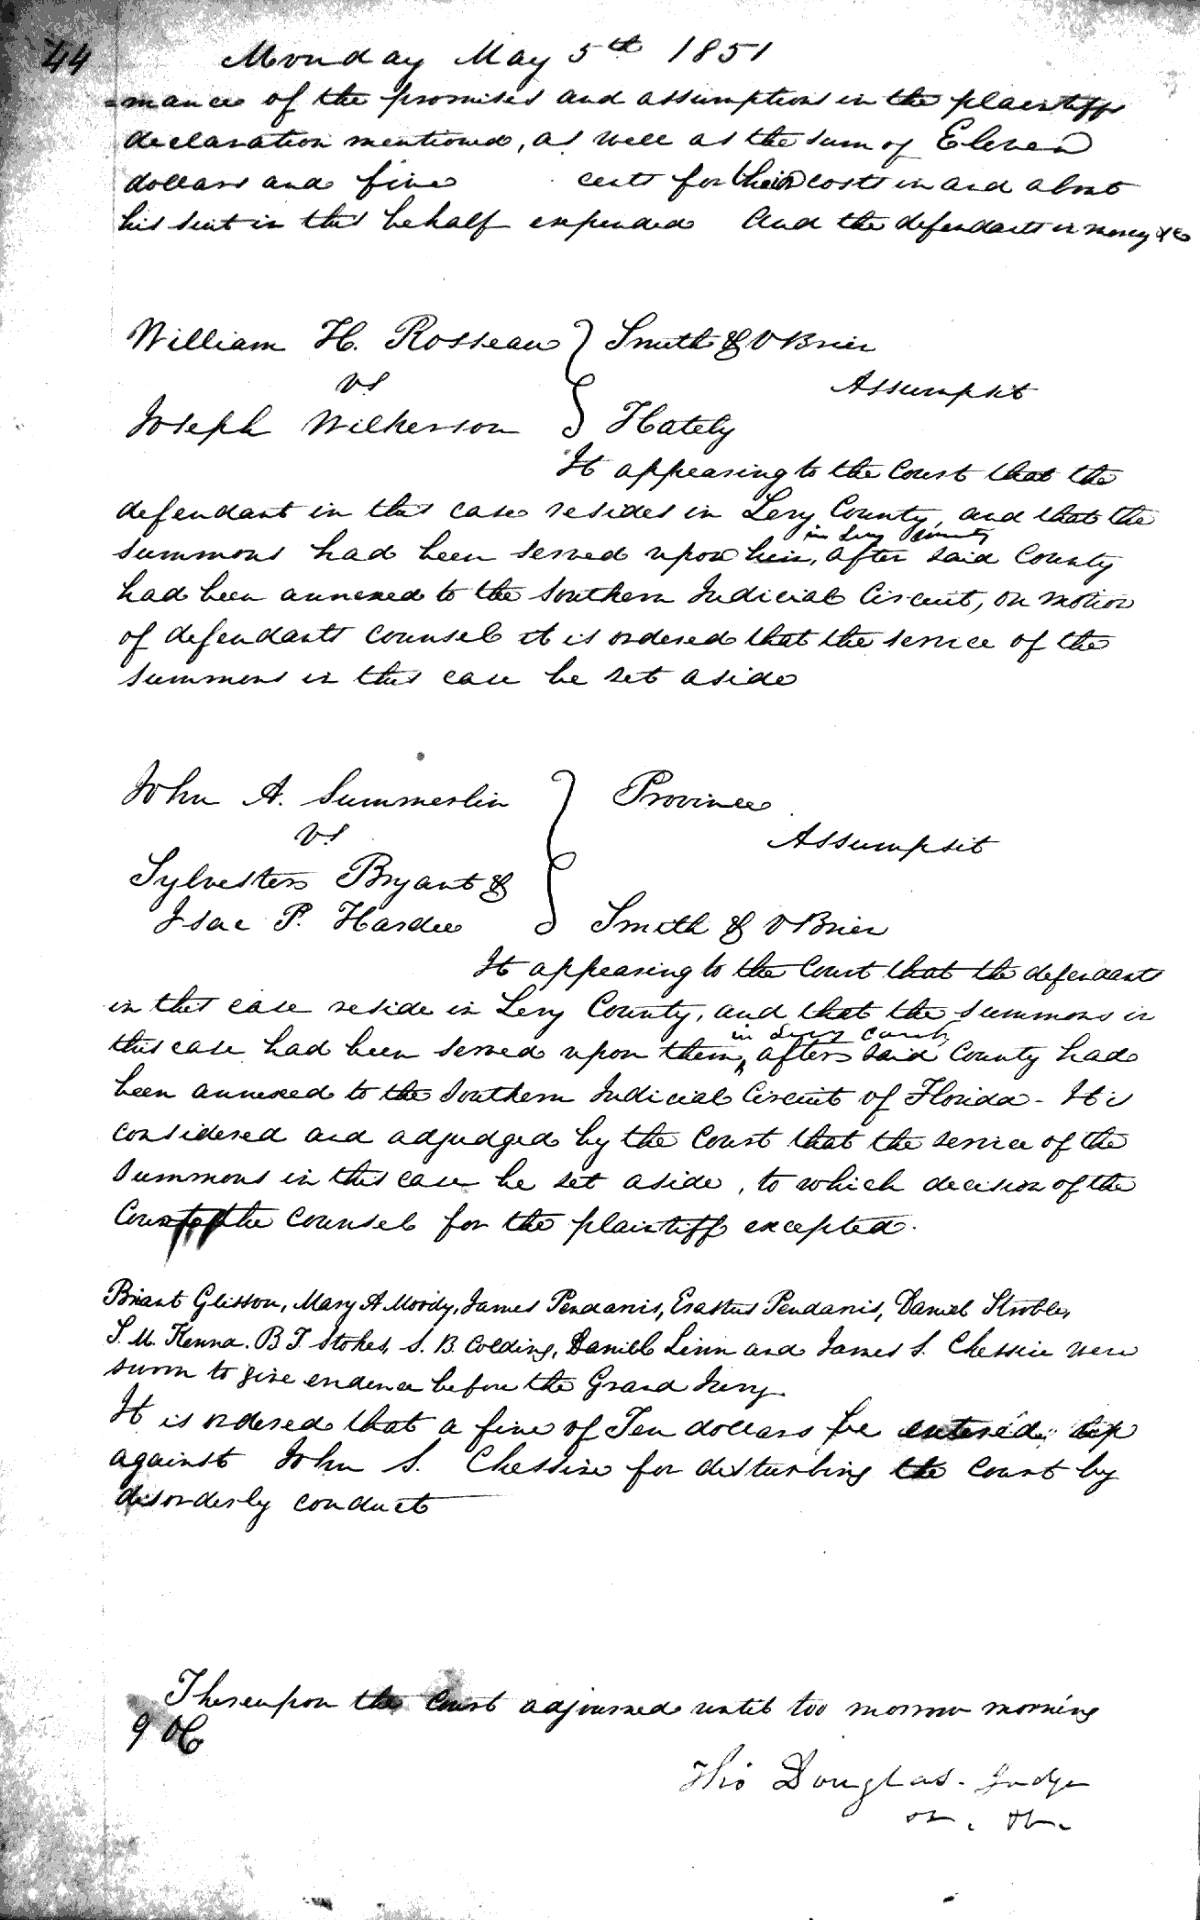 44
Monday May 5th 1851
-mance of the promises and assumptions in the plaintiffs
declaration mentioned, as well as the sum of Eleven
dollars and five cents for their costs in and about
his suit in this behalf expended And the defendants in mercy &c
William H. Rosseau } Smith & OBrien
vs Assumpsit
Joseph Wilkerson } Hately
It appearing to the Court that the
defendant in this case resides in Levy County, and that the
in Levy County
summons had been served upon him, after said County
had been annexed to the Southern Judicial Circuit, on motion
of defendants counsel it is ordered that the service of the
summons in this case be set aside
John A. Summerlin } Province
vs Assumpsit
Sylvesters Bryant &
Isac P. Hardee } Smith & OBrien
It appearing to the Court that the defendants
in this case reside in Levy County, and that the summons in
in Levy County
this case had been served upon them, after said County had
been annexed to the Southern Judicial Circuit of Florida - It is
considered and adjudged by the Court that the service of the
Summons in this case be set aside, to which decision of the
Court the counsel for the plaintiff excepted.
Briant Glisson, Mary A Moody, James Pendarvis, Erastus Pendarvis, Daniel Strobles,
S. M. Kenna, B. T. Stokes, S. B. Colding, Daniel Linn and James S. Chessire were
sworn to give evidence before the Grand Jury.
It is ordered that a fine of Ten dollars be entered up
against John S. Chessire for disturbing the Court by
disorderly conduct
Thereupon the Court adjourned until too morrow morning
9 OC
Tho Douglas. Judge